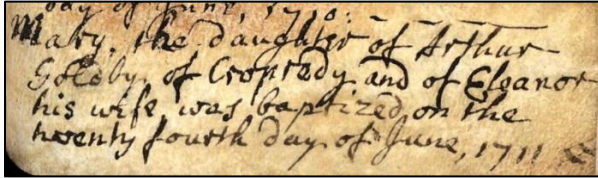 day of June, 1710:
Mary, the daughter of Arthur
Goldby, of Cropredy and of Eleanor
his wife was baptized on the
twenty fourth day of June, 1711